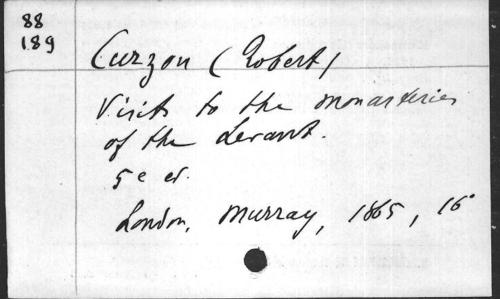 88
189
Curzon (Robert)
Visits to the monasteries
of the Levant.
5e ed.
London, Murray, 1865, 16°